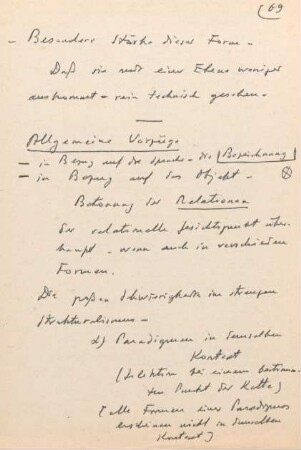 (69
- Besondere Stärke dieser Form -
Daß sie mit einer Ebene weniger
auskommt - rein technisch gesehen -
Allgemeine Vorzüge
- in Bezug auf die Sprache - die Bezeichnung
- in Bezug auf das Objekt -
Betonung der Relationen
Der relationelle Gesichtspunkt über-
haupt - wenn auch in verschiedenen
Formen.
Die großen Schwierigkeiten im strengen
Strukturalismus -
α) Paradigmen in demselben
Kontext
(Selektion bei einem bestimm-
ten Punkt der Kette)
[alle Formen eines Paradigmas
erscheinen nicht in demselben
Kontext]